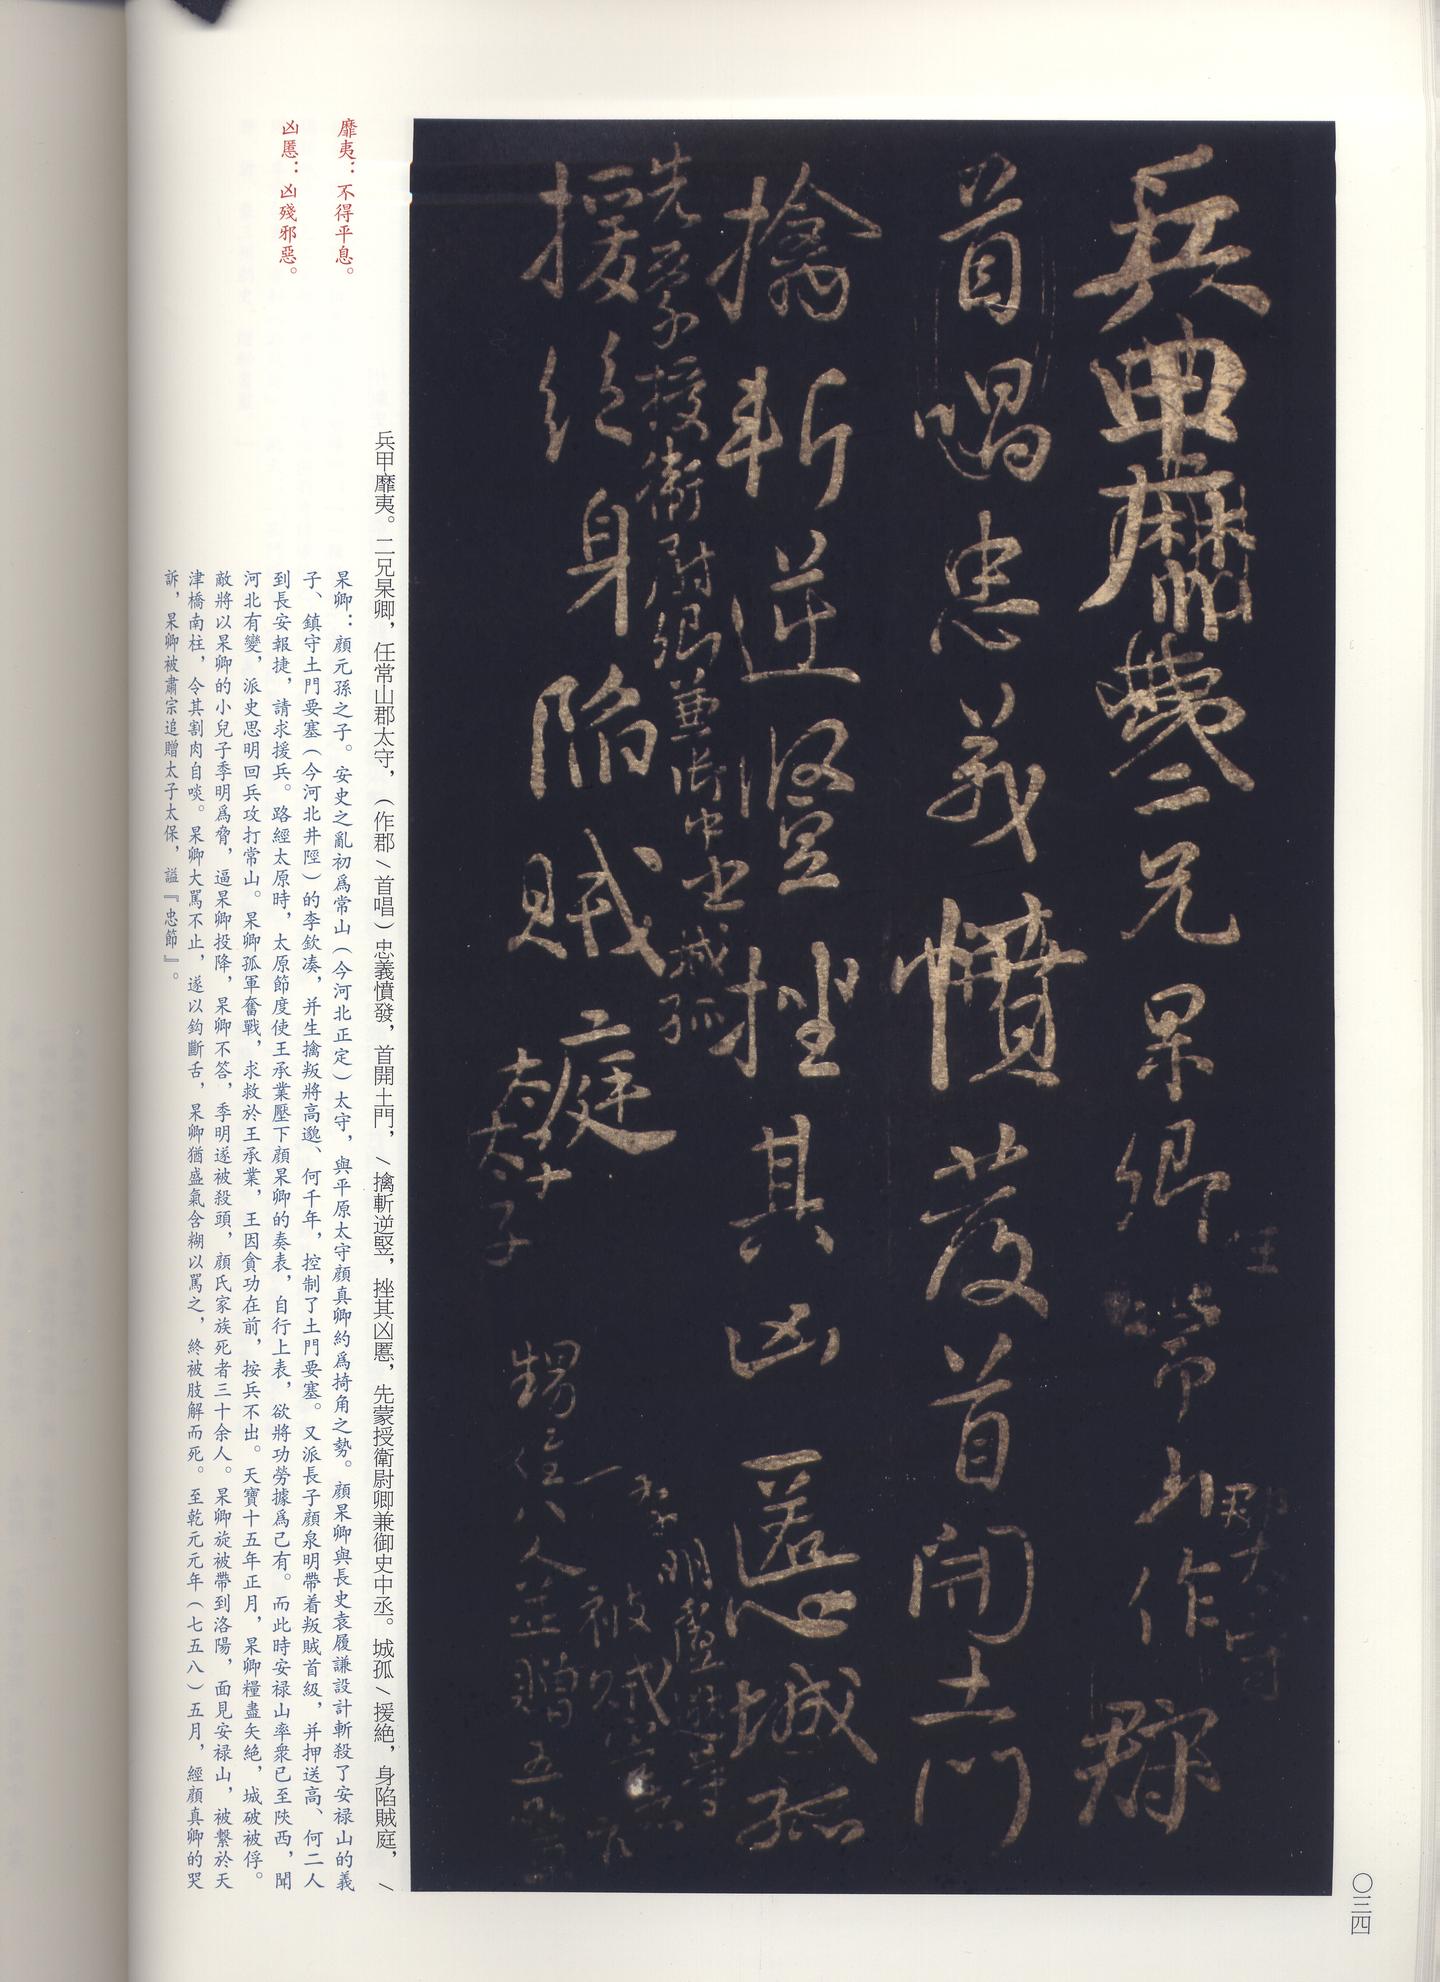 兵甲靡夷二兄杲卿任常山郡太守作郡
首唱忠義憤發首開土門
擒斬逆竪挫其凶慝城孤
先蒙授衛尉卿兼御史中丞城孤
援絶身陷賊庭
太子
甥姪八人並贈五品
一子明盧逖等
被賊害
〇三四
兵甲靡夷。二兄杲卿，任常山郡太守，（作郡／首唱）忠義憤發，首開土門，／擒斬逆竪，挫其凶慝，先蒙授衛尉卿兼御史中丞。城孤／援絶，身陷賊庭，／
靡夷：不得平息。
凶慝：凶殘邪惡。
杲卿：顔元孫之子。安史之亂初爲常山（今河北正定）太守，與平原太守顔真卿約爲掎角之勢。顔杲卿與長史袁履謙設計斬殺了安禄山的義
子、鎮守土門要塞（今河北井陘）的李欽凑，并生擒叛將高邈、何千年，控制了土門要塞。又派長子顔泉明帶着叛賊首級，并押送高、何二人
到長安報捷，請求援兵。路經太原時，太原節度使王承業壓下顔杲卿的奏表，自行上表，欲將功勞據爲己有。而此時安禄山率衆已至陝西，聞
河北有變，派史思明回兵攻打常山。杲卿孤軍奮戰，求救於王承業，王因貪功在前，按兵不出。天寶十五年正月，杲卿糧盡矢絶，城破被俘。
敵將以杲卿的小兒子季明爲脅，逼杲卿投降，杲卿不答，季明遂被殺頭，顔氏家族死者三十余人。杲卿旋被帶到洛陽，面見安禄山，被繫於天
津橋南柱，令其割肉自啖。杲卿大罵不止，遂以鈎斷舌，杲卿猶盛氣含糊以罵之，終被肢解而死。至乾元元年（七五八）五月，經顔真卿的哭
訴，杲卿被肅宗追贈太子太保，謚『忠節』。